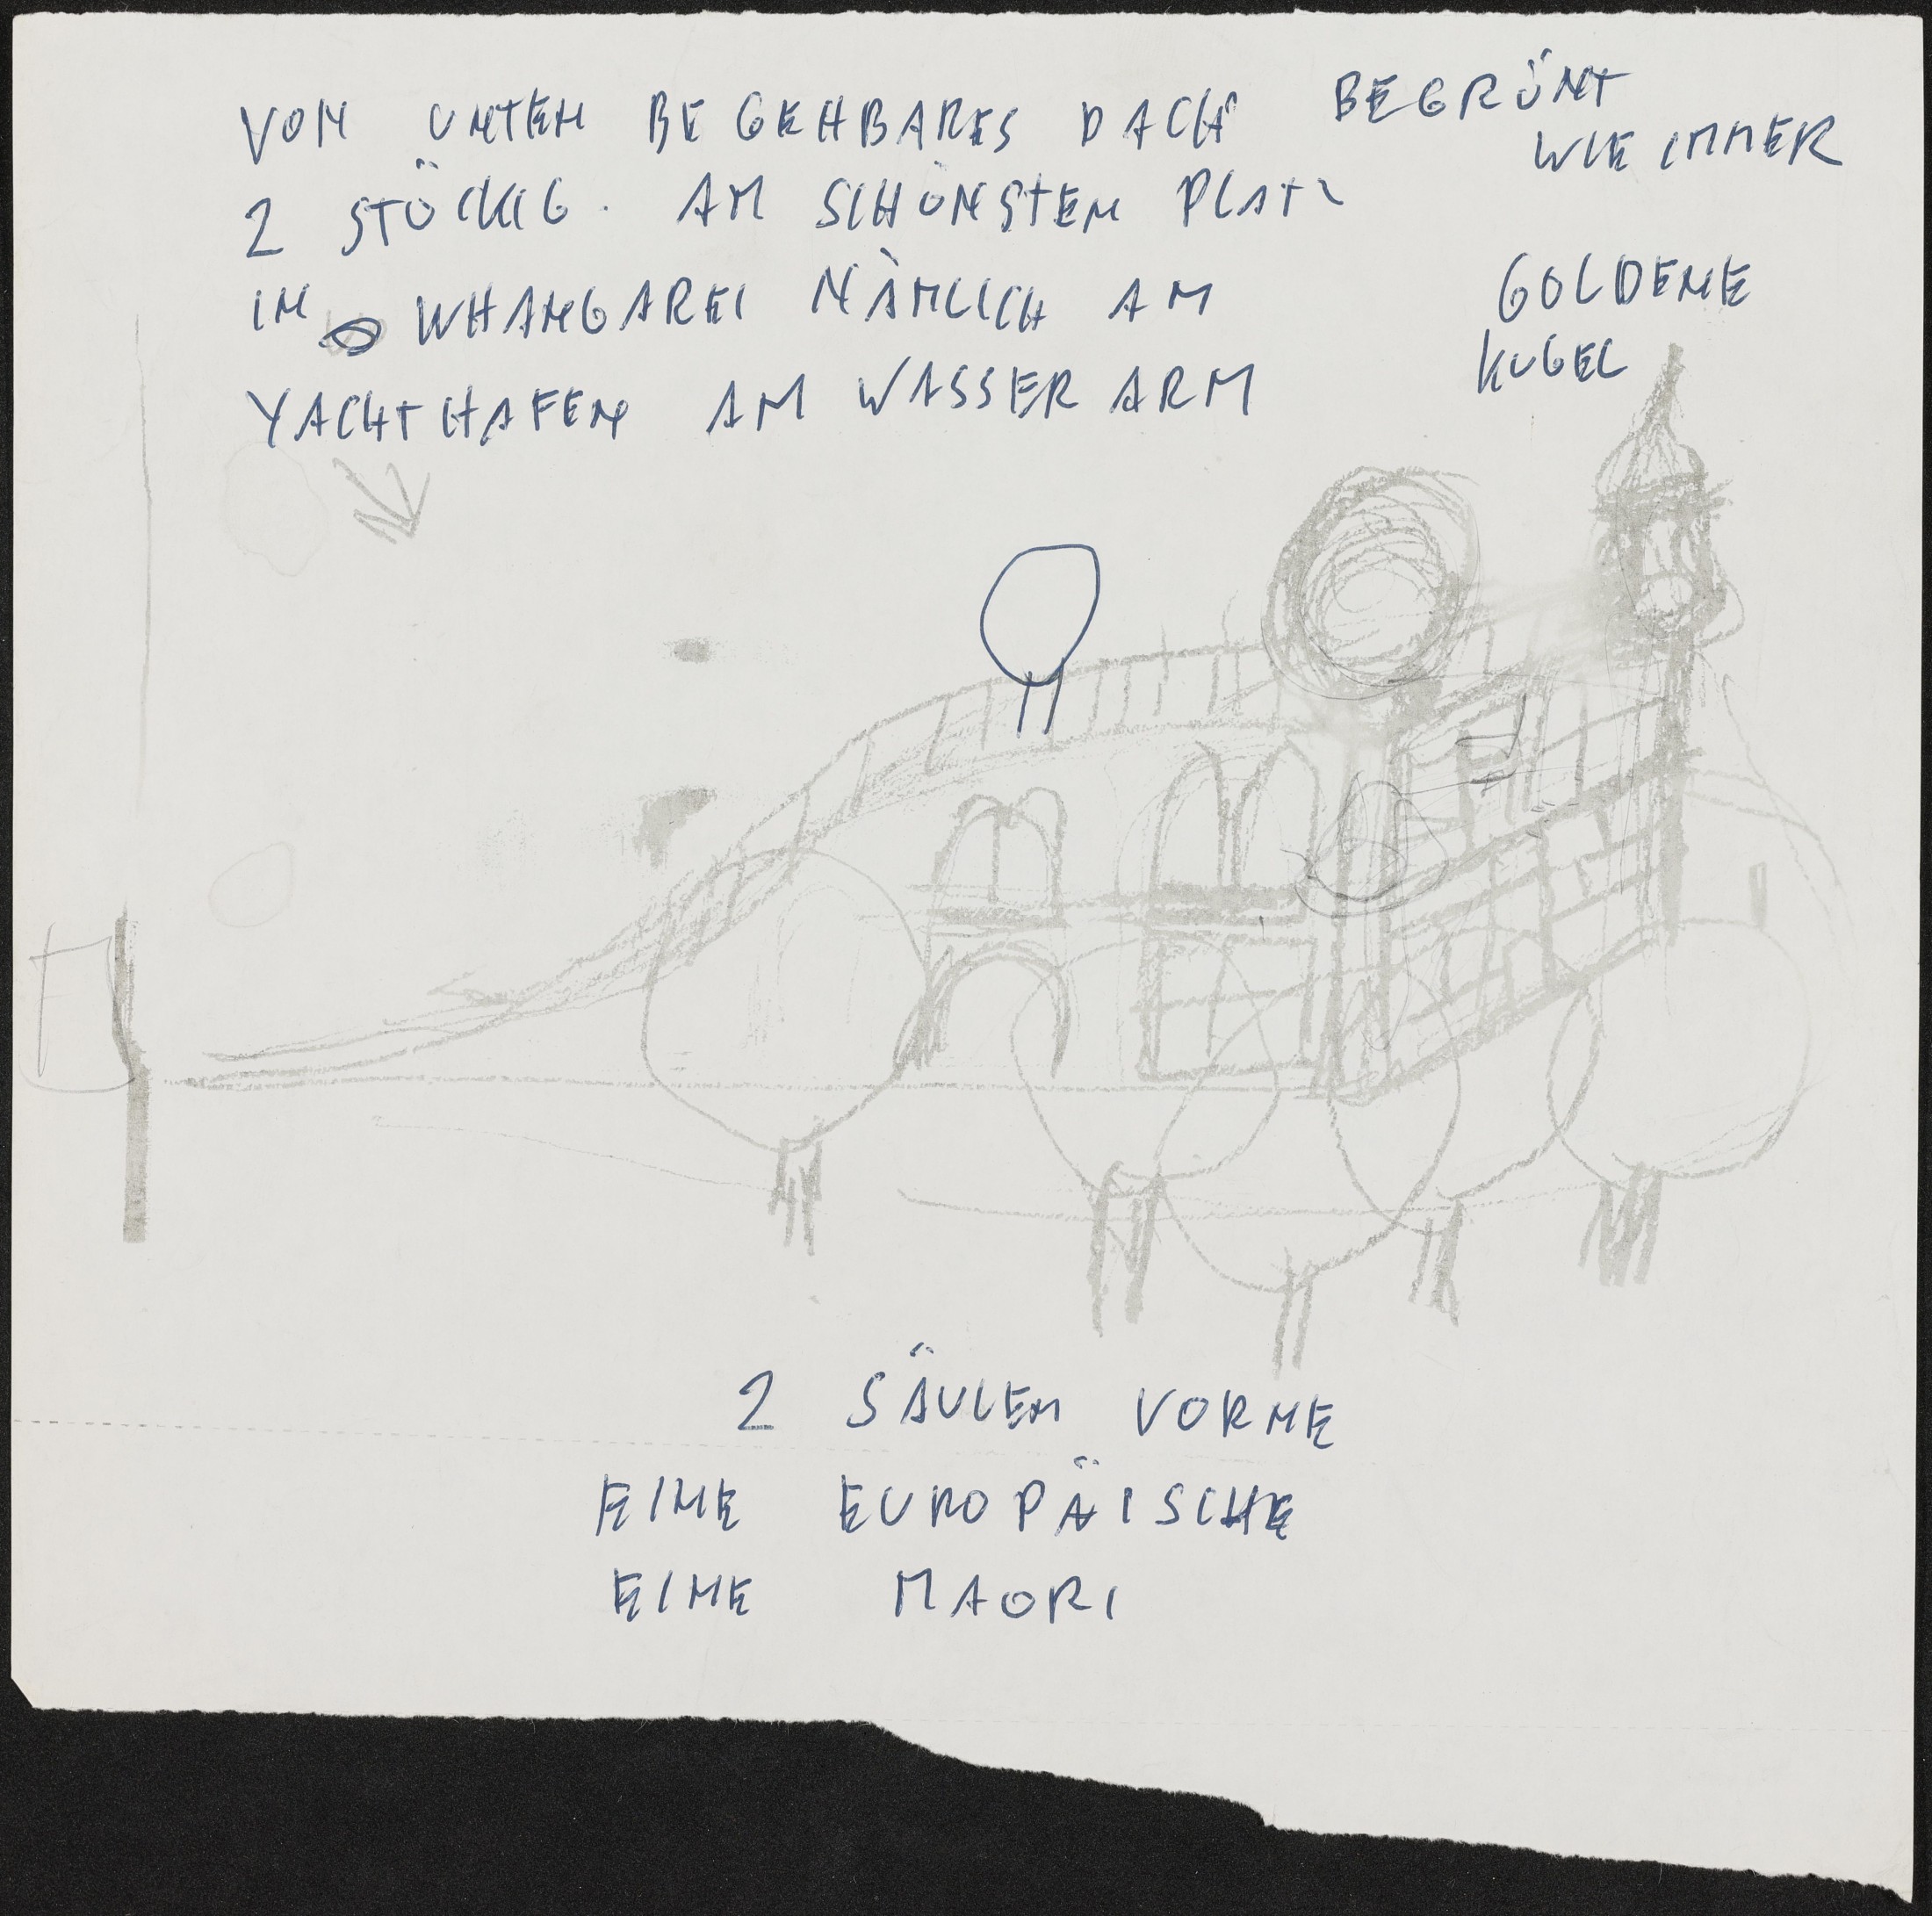 VON UNTEN BEGEHBARES DACH BEGRÜNT
WIE IMMER
2 STÖCKIG. AM SCHÖNSTEN PLATZ
IN WHANGAREI NÄMLICH AM
GOLDENE
KUGEL
YACHTHAFEN AM WASSERARM
2 SÄULEN VORNE
EINE EUROPÄISCHE
EINE MAORI